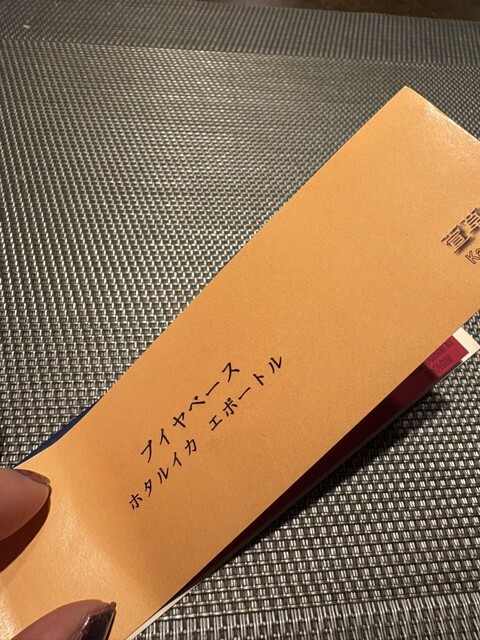 ブイヤベース
ホタルイカ エポートル